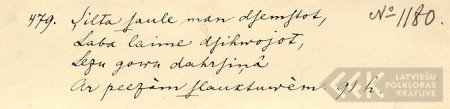 479. Silta saule man dsemstot, № 1180.
Laba laime dsihwojot,
Lezu gowu dahrsiņâ
Ar peezām slauktuwēm. 91 k.
LATVIEŠU
FOLKLORAS
KRĀTUVE